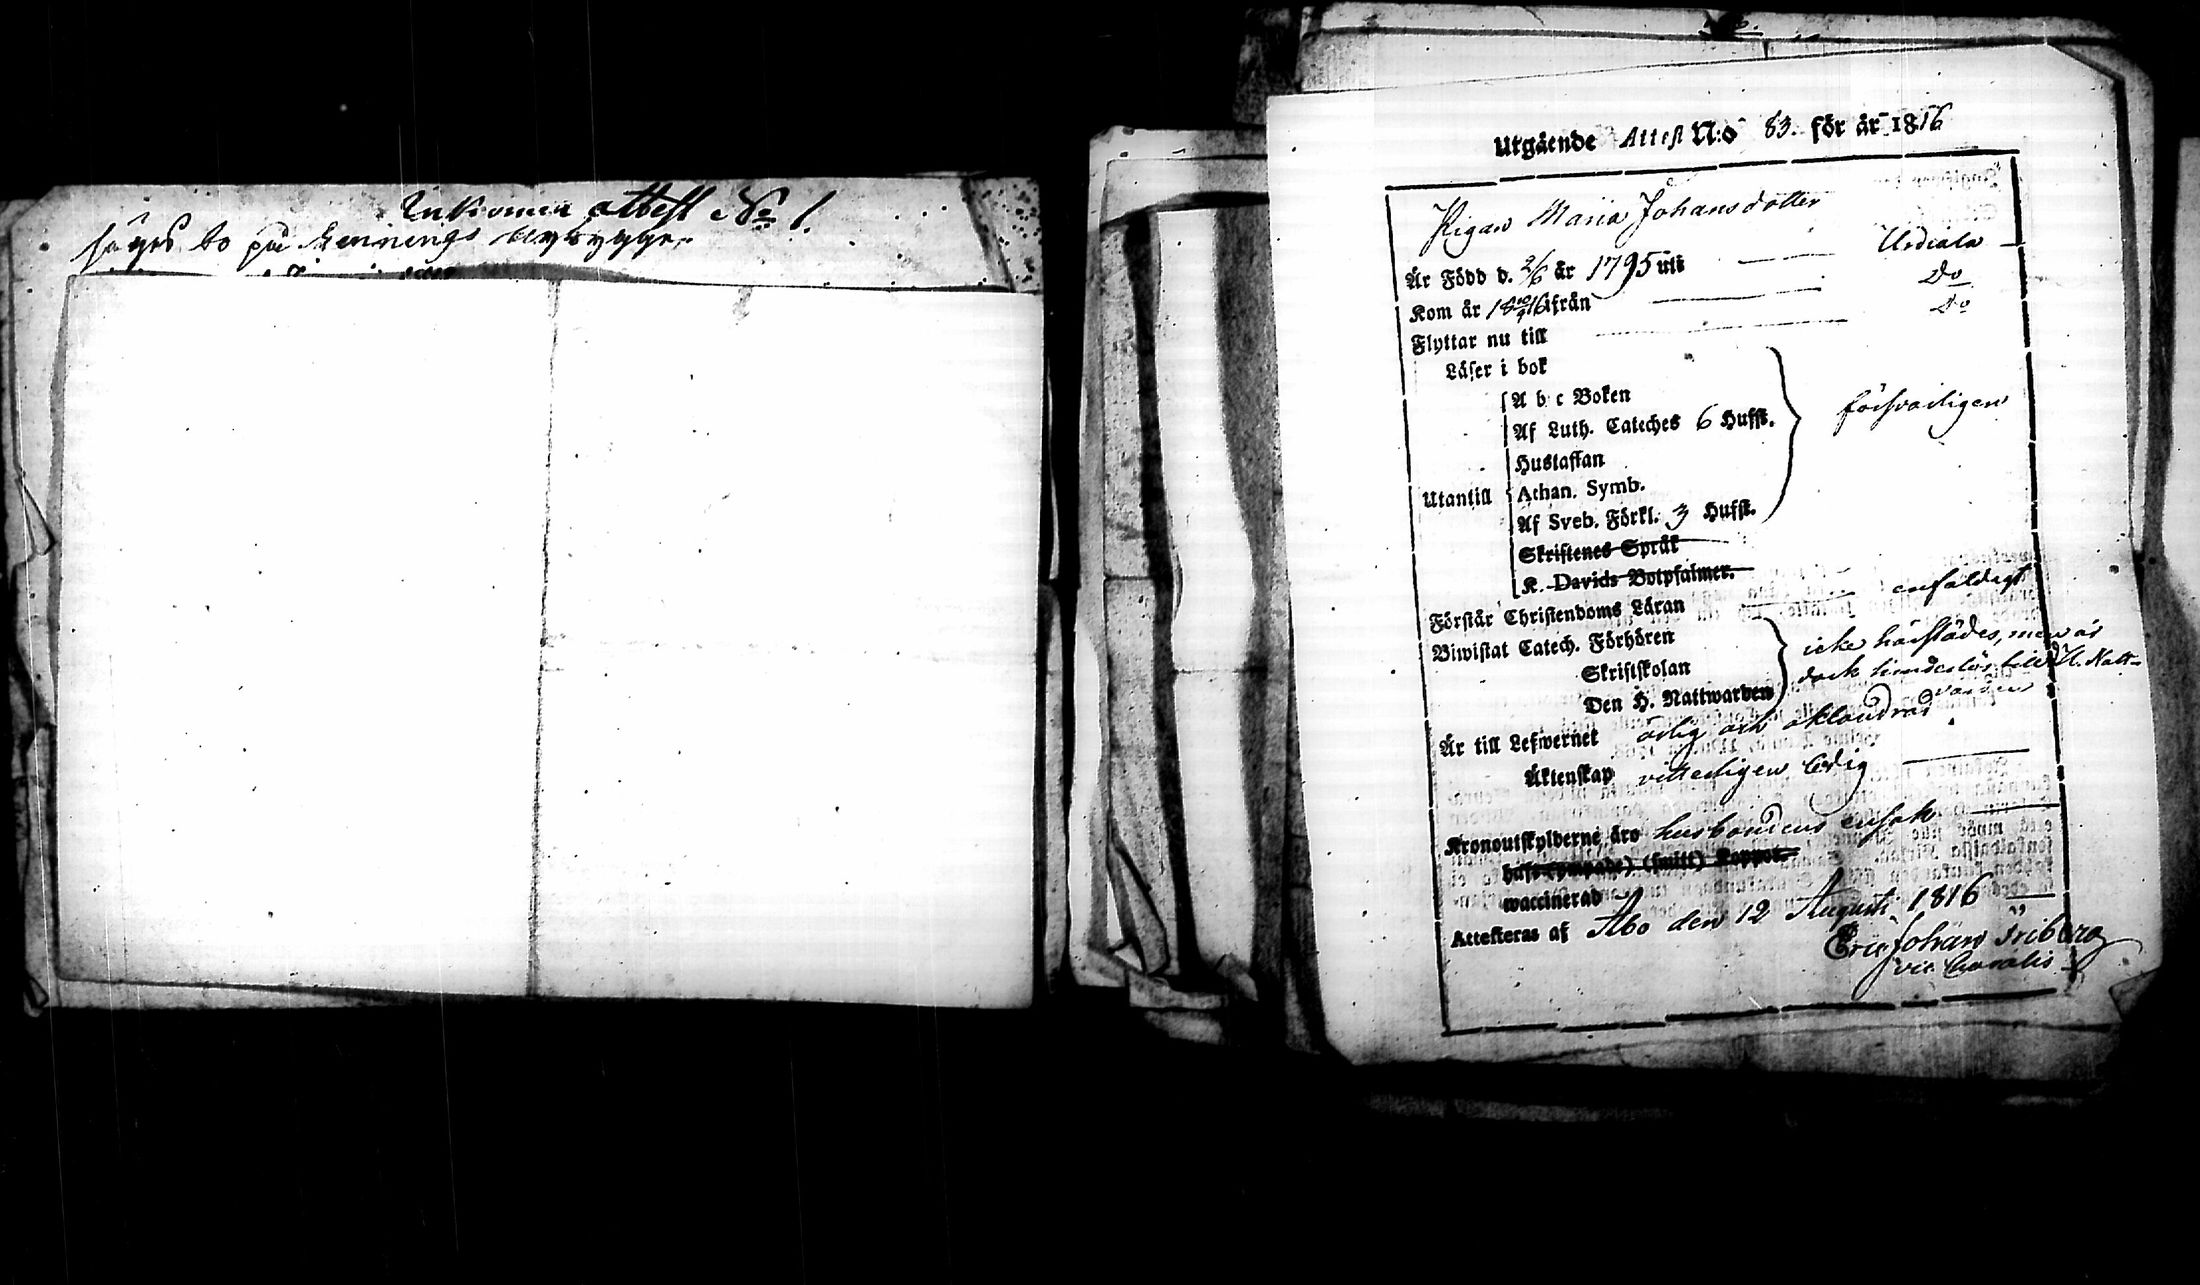 Inkommen attest No 1.
säges bo på Hennings nybygge
Utgående Attest N:o 83. för år 1816
Pigan Maria Johansdotter
Är Född d. 2/6 år 1795 uti Urdiala
Kom år 18 10/4 16 ifrån Do
Flyttar nu till Do
Läser i bok
A b c Boken
Af Luth. Cateches 6 Hufst. försvarligen
Hustaflan
Utantill Athan. Symb.
Af Sveb. Förkl. 3 Hufst.
Skriftenes Språk
K. Davids Botpsalmer.
Förstår Christendoms Läran enfaldigt
Biwistat Catech. Förhören icke härstädes, men är
Skriftskolan dock hinderlös till H. Natt-
Den H. Nattwarden varden
Är till Lefwernet ärlig och oklandrad
Äktenskap vitterligen ledig
Kronoutskylderne äro husbondens ensak
haft (smitt) Koppor.
waccinerad
Attesteras af Åbo den 12 Augusti 1816
Eric Johan Friberg
vic